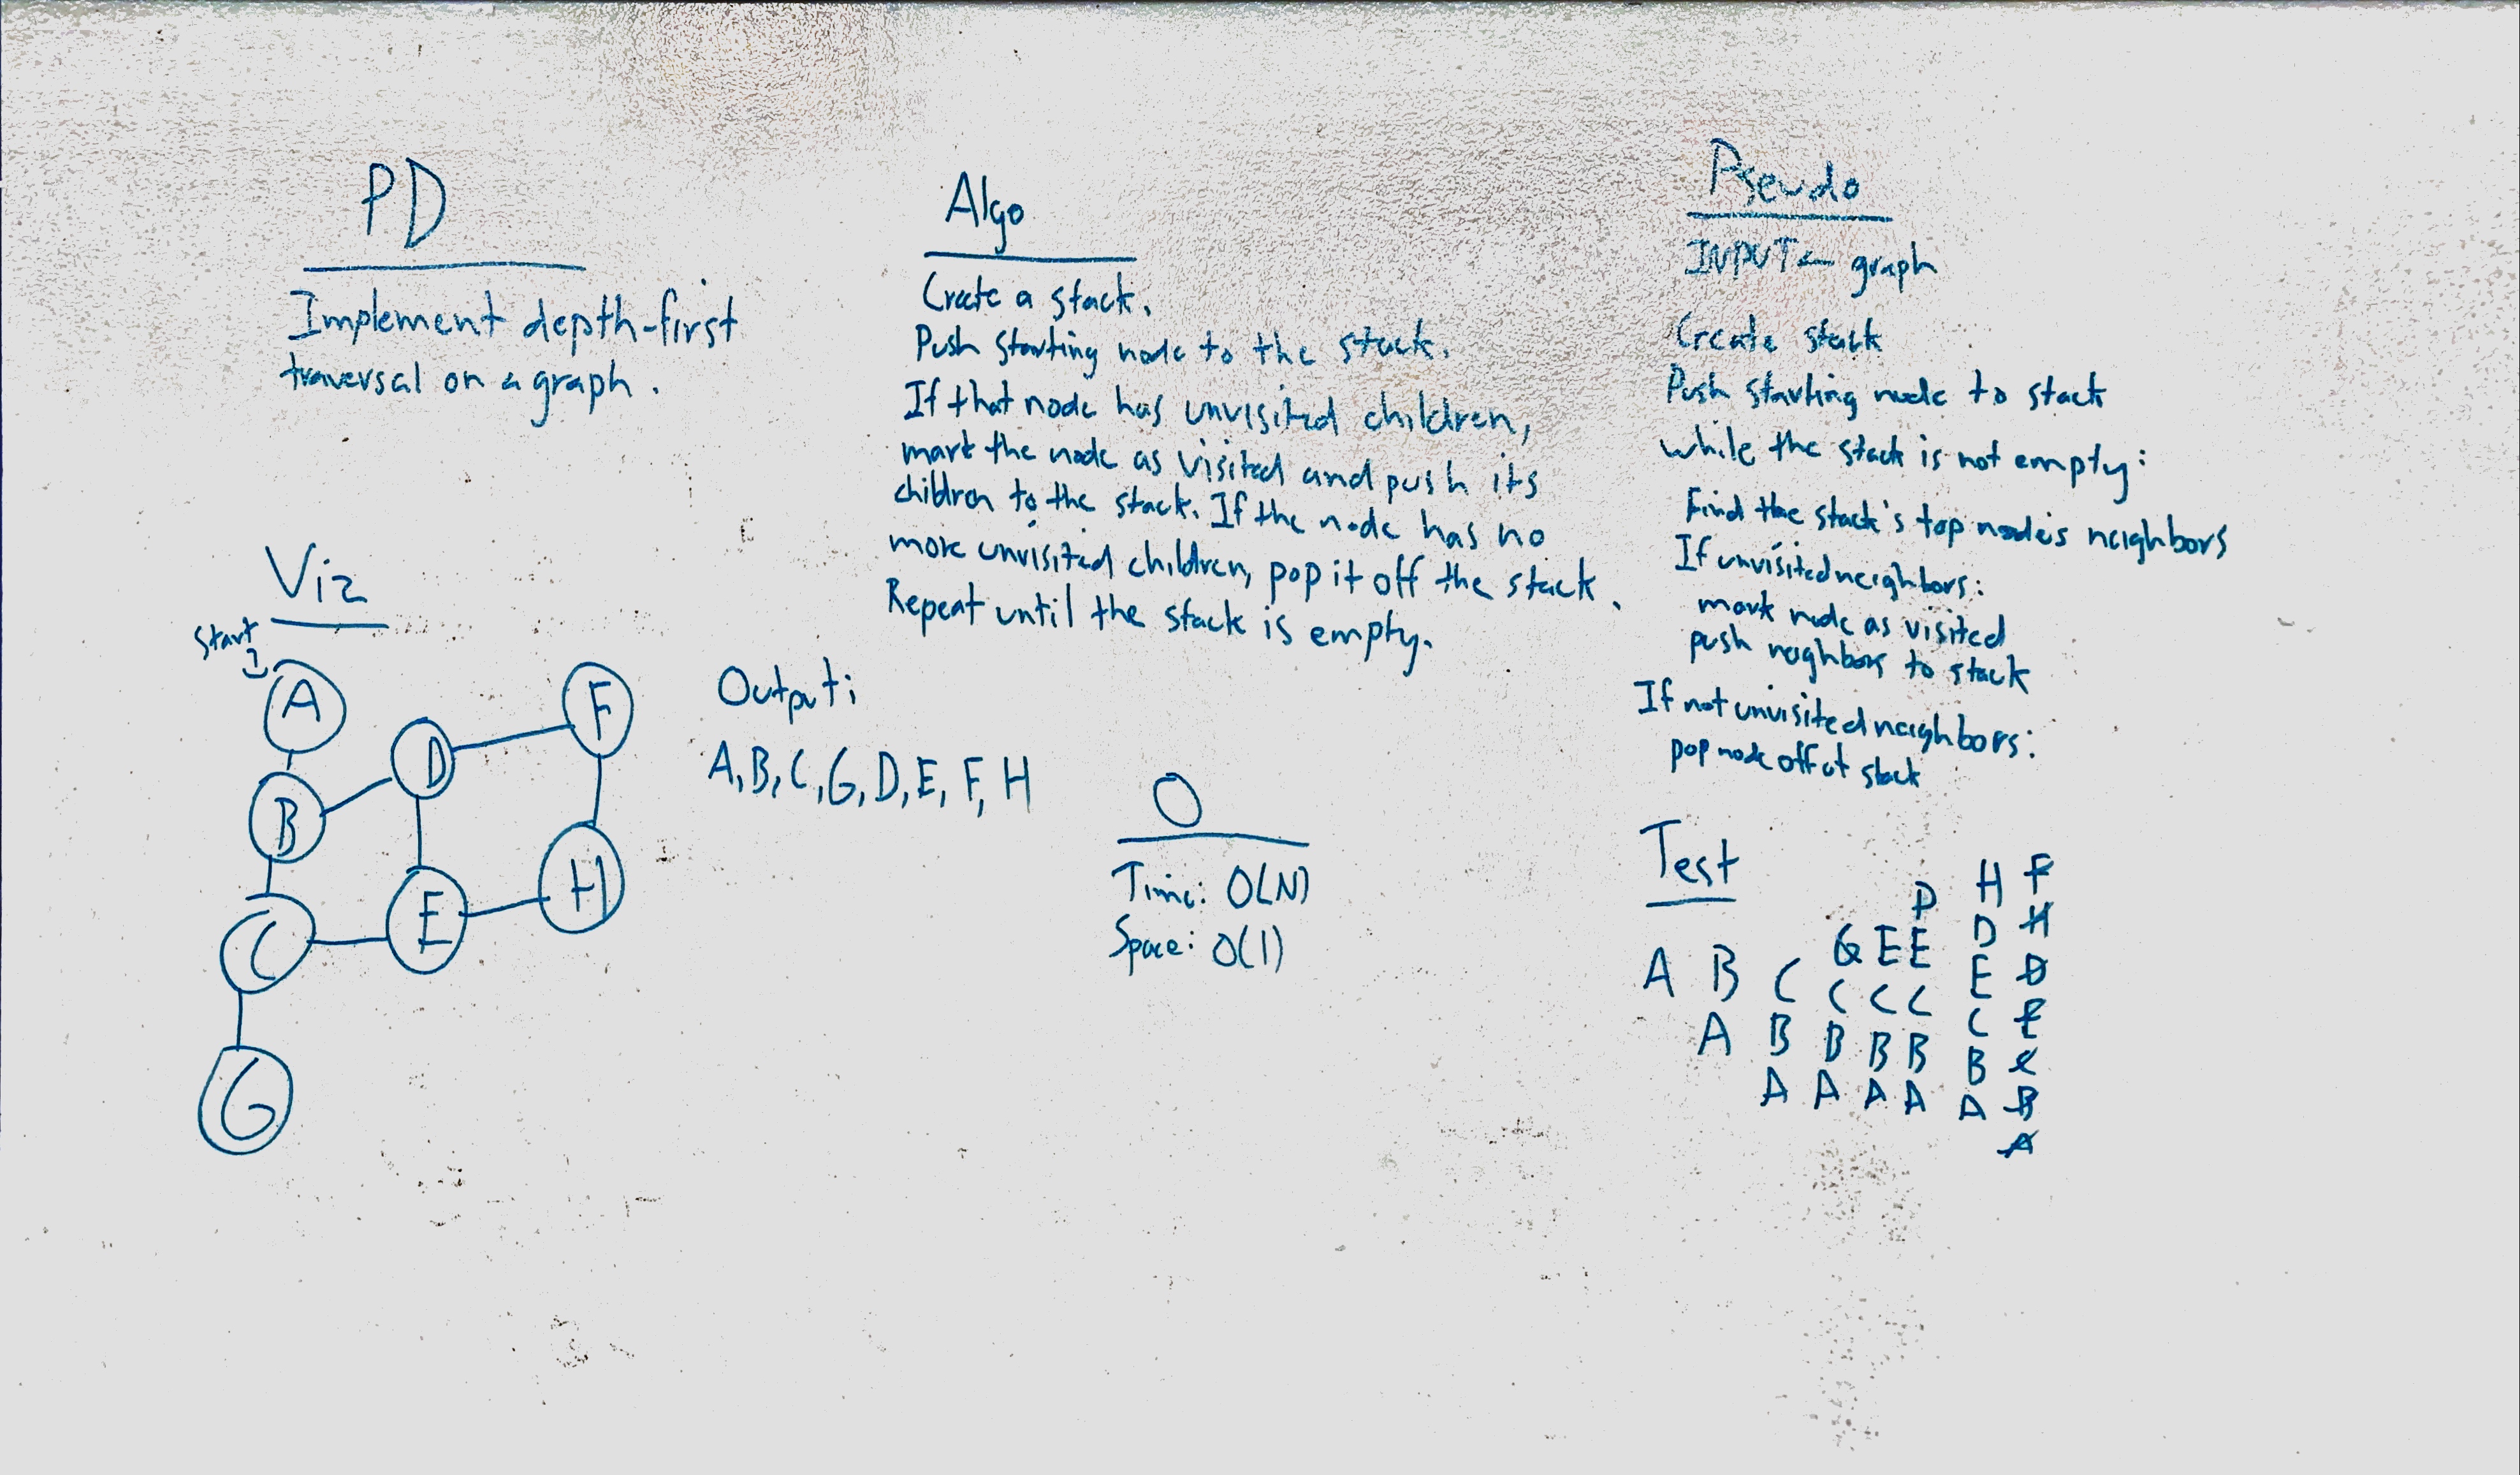 PD
Implement depth-first
traversal on a graph.
Viz
Start
A
F
D
B
H
E
C
G
Output:
A, B, C, G, D, E, F, H
Algo
Create a stack.
Push starting node to the stack.
If that node has unvisited children,
mark the node as visited and push its
children to the stack. If the node has no
more unvisited children, pop it off the stack.
Repeat until the stack is empty.
O
Time: O(N)
Space: O(1)
Pseudo
INPUT ← graph
Create stack
Push starting node to stack
while the stack is not empty:
Find the stack's top node's neighbors
If unvisited neighbors:
mark node as visited
push neighbors to stack
If not unvisited neighbors:
pop node off of stack
Test
H F
D D H
G E E E D
A B C C C C E
A B B B B C C
A A A A B B
A A